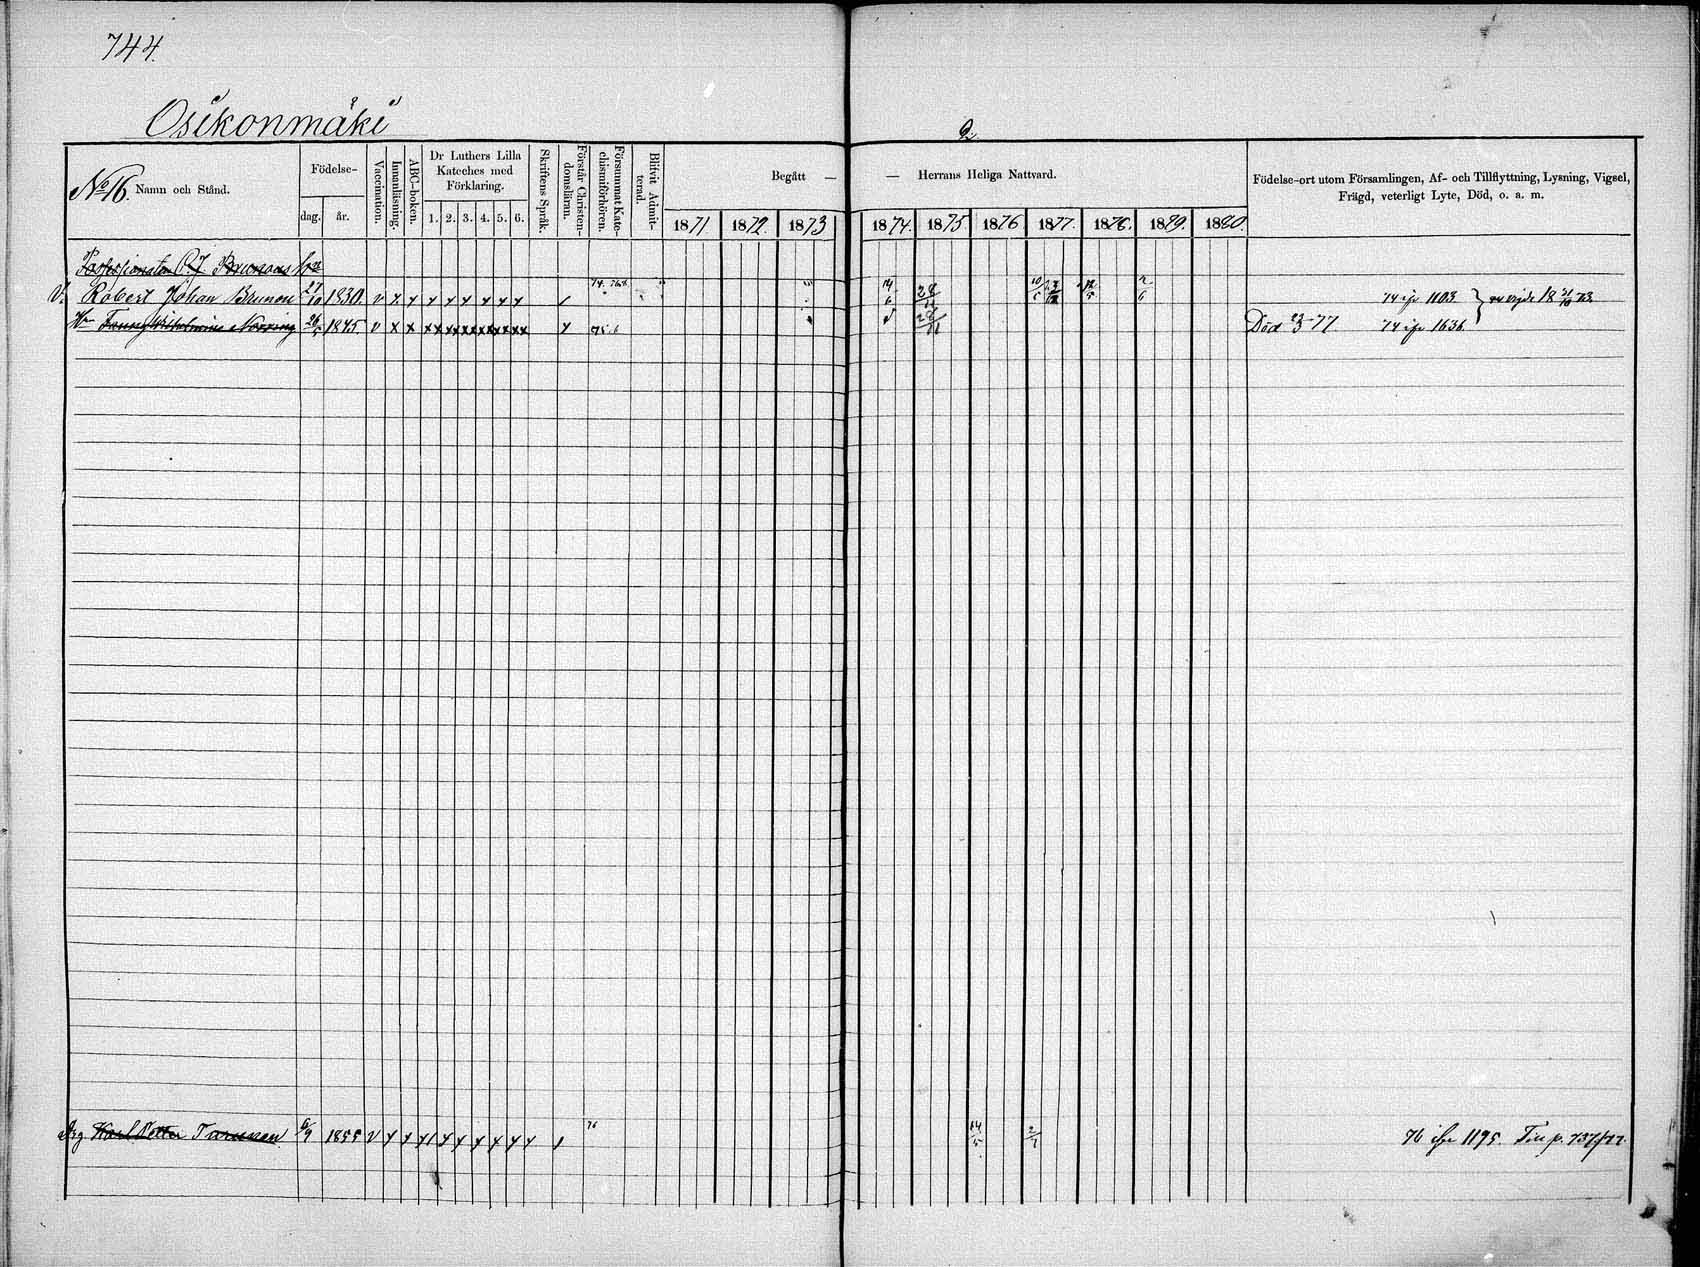 744.
Osikonmäki
2.
No 16. Namn och Stånd.
Födelse-
dag. år.
Vaccination.
Innanläsning.
ABC-boken.
Dr Luthers Lilla
Kateches med
Förklaring.
1. 2. 3. 4. 5. 6.
Skriftens Språk.
Förstår Christen-
domsläran.
Försummat Kate-
chismiförhören.
Blifvit Admit-
terad.
Begått — — Herrans Heliga Nattvard.
1871 1872. 1873 1874. 1875. 1876 1877. 1878. 1879. 1880.
Födelse-ort utom Församlingen, Af- och Tillflyttning, Lysning, Vigsel,
Frägd, veterligt Lyte, Död, o. a. m.
Possessionaten Brunous
Robert Johan Brunou 27/10 1830. v x x x x x x x x 74. 14/6 28/11 2/6 74 1103
Fanny Wilhelmina Norring 26/5 1845 v x x xx xx xx xx xx xx 28/11 Död 23/3 77 74 1636.
Karl Petter Tarunen 6/9 1855 v 76 14/5 2/7 76 1195. p. 737/77.